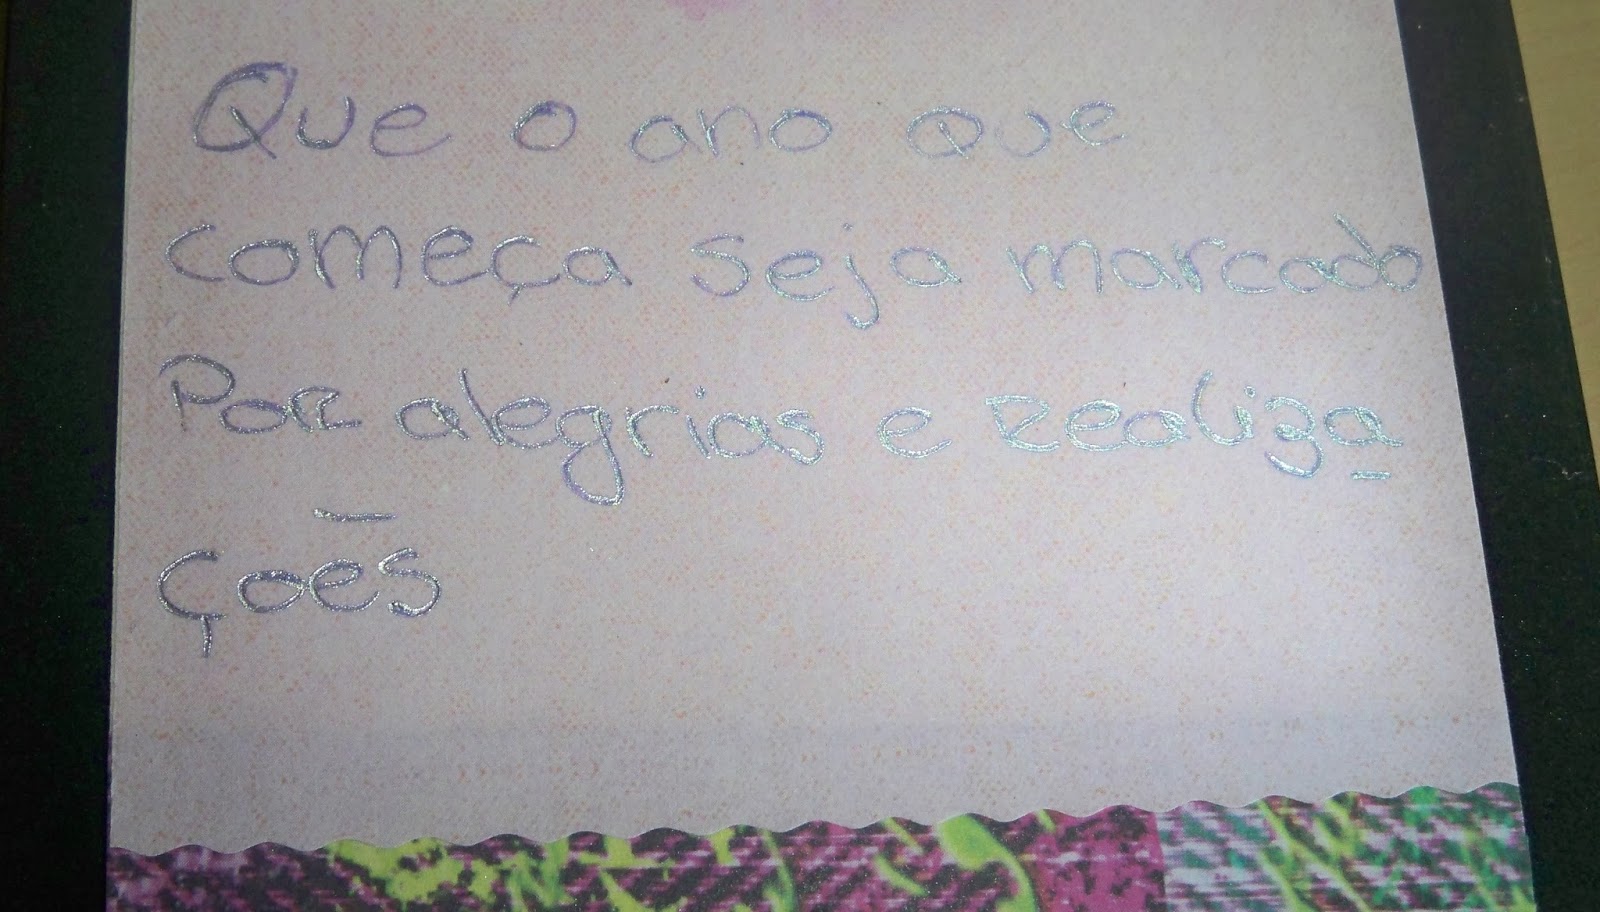 Que o ano que
começa seja marcado
Por alegrias e realiza
ções